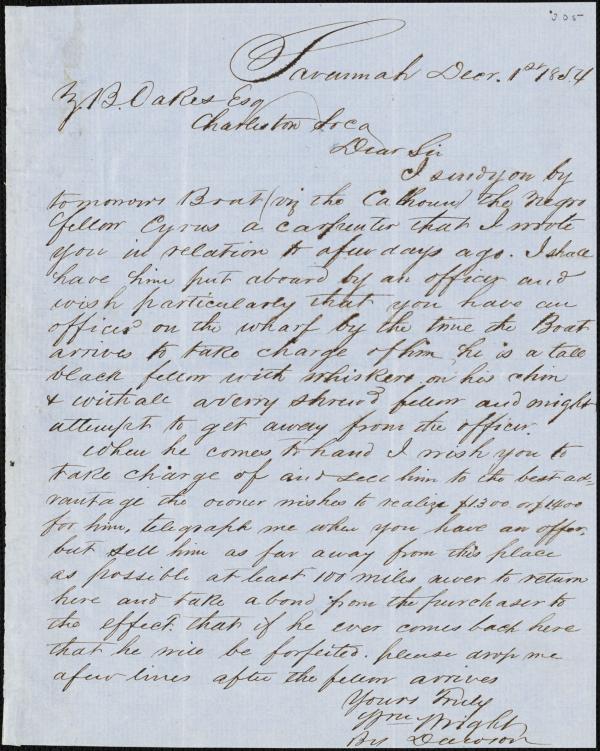 305
Savannah Decr. 1st 1854
Z B. Oakes Esq
Charleston So ca
Dear Sir
I send you by
tomorrows Boat (viz the Calhoun) the Negro
fellow Cyrus a carpenter that I wrote
you in relation to a few days ago. I shall
have him put aboard by an officer and
wish particularly that you have an
officer on the wharf by the time the Boat
arrives to take charge of him he is a tall
black fellow with whiskers on his chin
& withall a verry shrewd fellow and might
attempt to get away from the officer.
When he comes to hand I wish you to
take charge of and sell him to the best ad-
vantage the owner wishes to realize $1300 or $1400
for him, telegraph me when you have an offer,
but sell him as far away from this place
as possible at least 100 miles never to return
here and take a bond from the purchaser to
the effect. that if he ever comes back here
that he will be forfeited. please drop me
a few lines after the fellow arrives
Yours Truly
Wm Wright
By Dawson